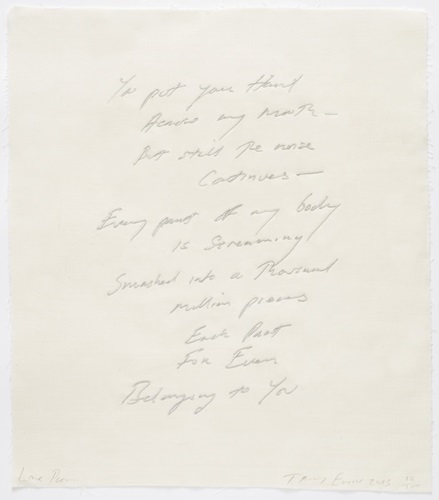 You put your Hand
Across my mouth —
But still the noise
Continues —
Every part of my body
is Screaming
Smashed into a Thousand
million pieces
Each Part
For Ever
Belonging to You
Love Poem
Tracey Emin 2013